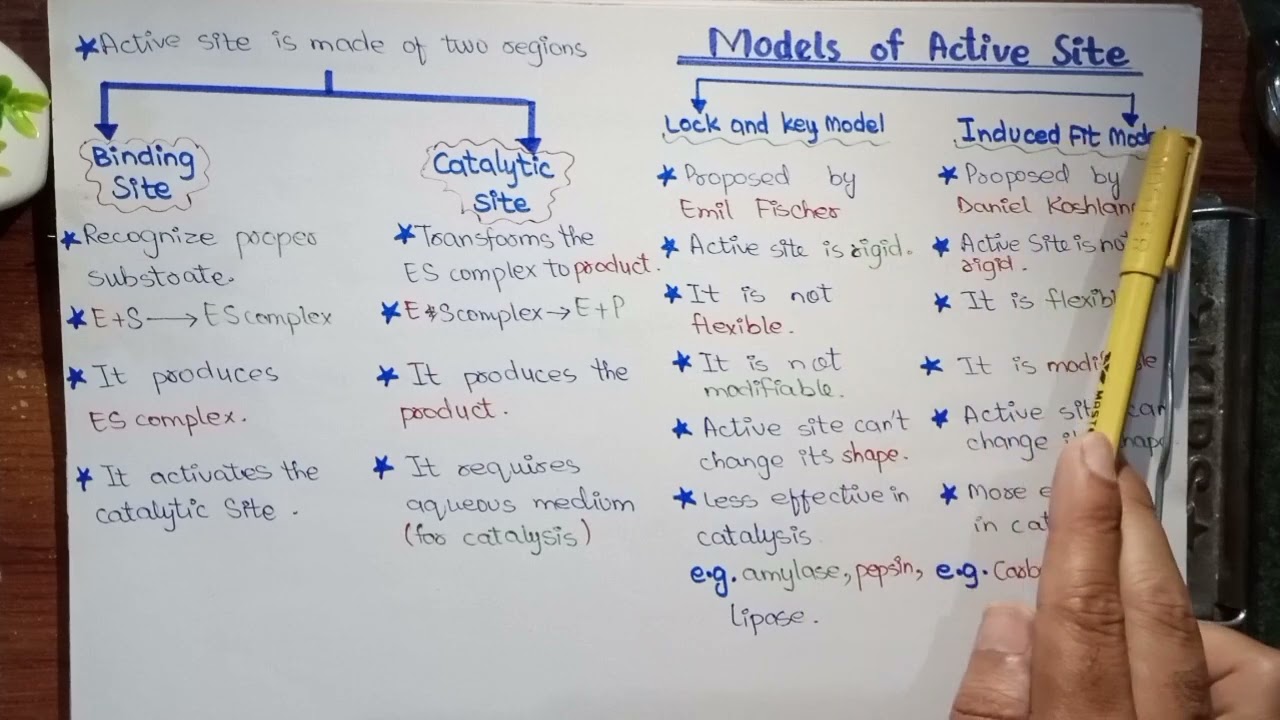 ★Active site is made of two regions
Binding
Site
★Recognize proper
substrate.
★E+S → ES complex
★ It produces
ES complex.
★ It activates the
catalytic Site.
Catalytic
Site
★Transforms the
ES complex to product.
★E*S complex → E+P
★ It produces the
product.
★ It requires
aqueous medium
(for catalysis)
Models of Active Site
Lock and key Model
★ Proposed by
Emil Fischer
★ Active site is rigid.
★ It is not
flexible.
★ It is not
modifiable.
★ Active site can't
change its shape.
★ Less effective in
catalysis
e.g. amylase, pepsin,
lipase.
Induced Fit
★ Proposed by
Daniel
★ Active Site is not
rigid.
★ It is
★ It is
★ Active can
change
★ More
in
e.g.